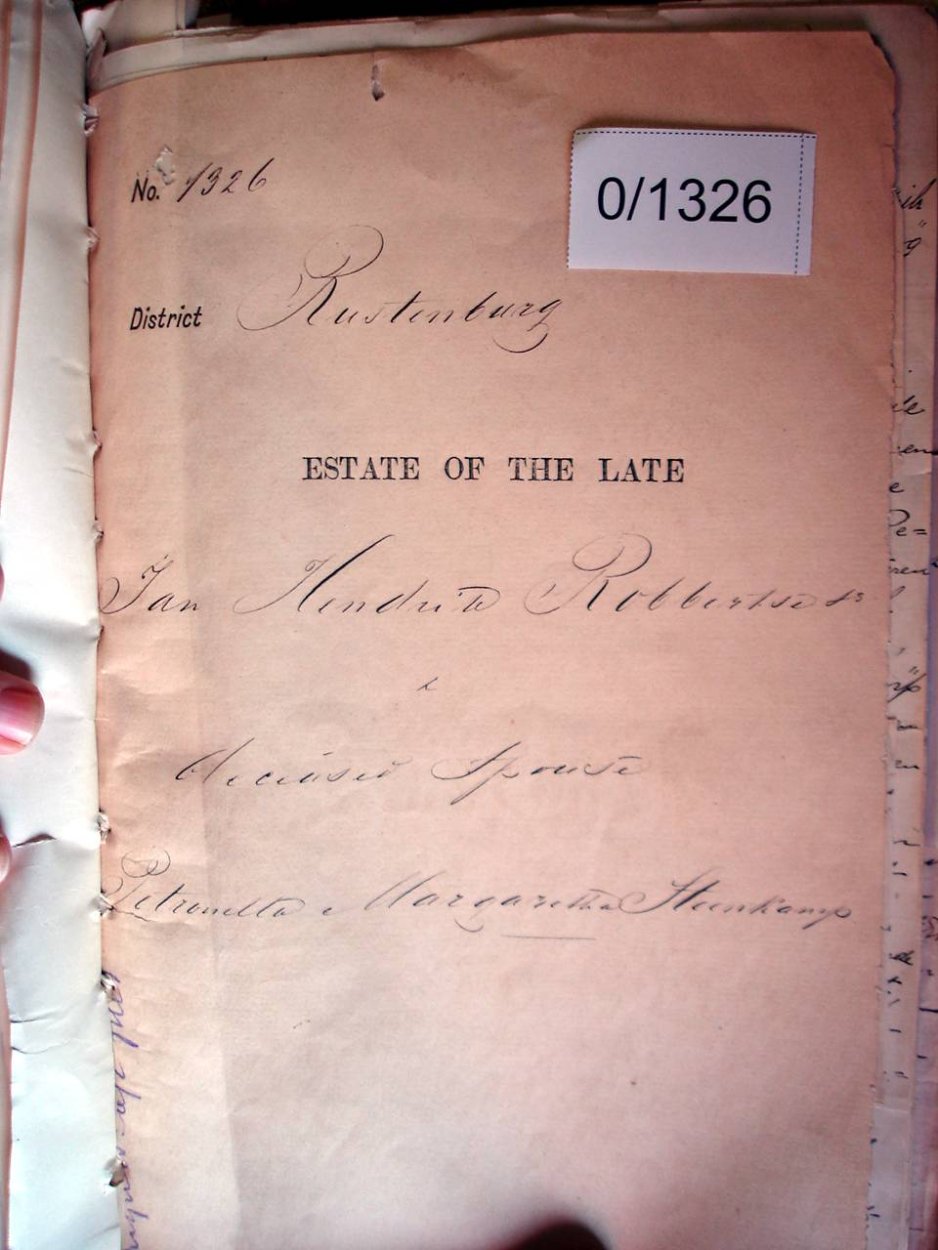 No. 1326
0/1326
District Rustenburg
ESTATE OF THE LATE
Jan Hendrik Robbertse sr
&
deceased Spouse
Petronella Margaretha Steenkamp